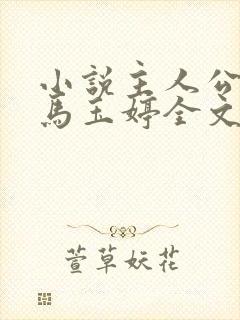 小说主人公
马玉婷全文
萱草妖花